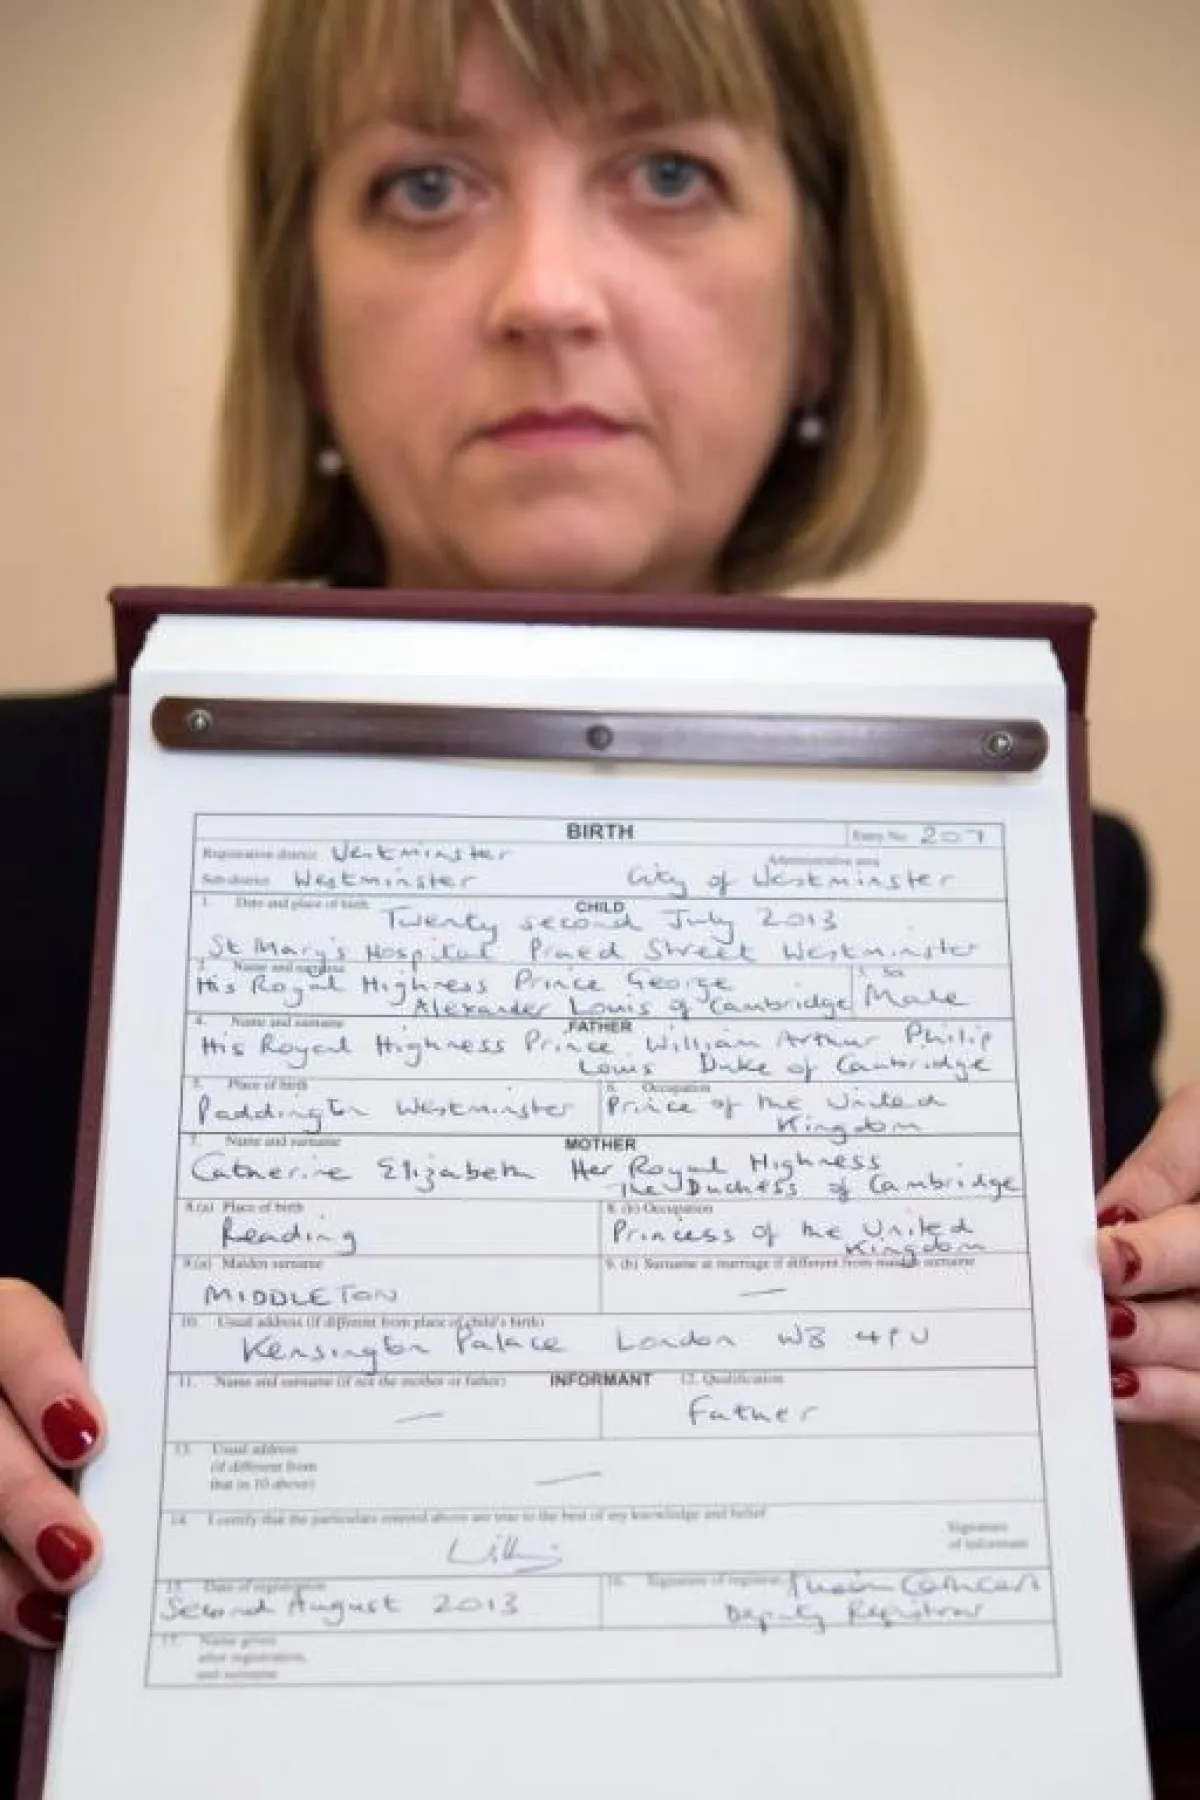 BIRTH
Entry No. 207
Registration district Westminster
Administrative area
Sub-district Westminster
City of Westminster
1. Date and place of birth
CHILD
Twenty second July 2013
St Mary's Hospital Praed Street Westminster
2. Name and surname
3. Sex
His Royal Highness Prince George
Alexander Louis of Cambridge
Male
4. Name and surname
FATHER
His Royal Highness Prince William Arthur Philip
Louis Duke of Cambridge
5. Place of birth
6. Occupation
Paddington Westminster
Prince of the United
Kingdom
7. Name and surname
MOTHER
Catherine Elizabeth Her Royal Highness
The Duchess of Cambridge
8.(a) Place of birth
8. (b) Occupation
Reading
Princess of the United
Kingdom
9.(a) Maiden surname
9. (b) Surname at marriage if different from maiden surname
MIDDLETON
—
10. Usual address (if different from place of child's birth)
Kensington Palace London W8 4PU
11. Name and surname (if not the mother or father)
INFORMANT
12. Qualification
—
Father
13. Usual address
(if different from
that in 10 above)
—
14. I certify that the particulars entered above are true to the best of my knowledge and belief
Signature
of informant
15. Date of registration
16. Signature of registrar
Second August 2013
Deputy Registrar
17. Name given
after registration,
and surname